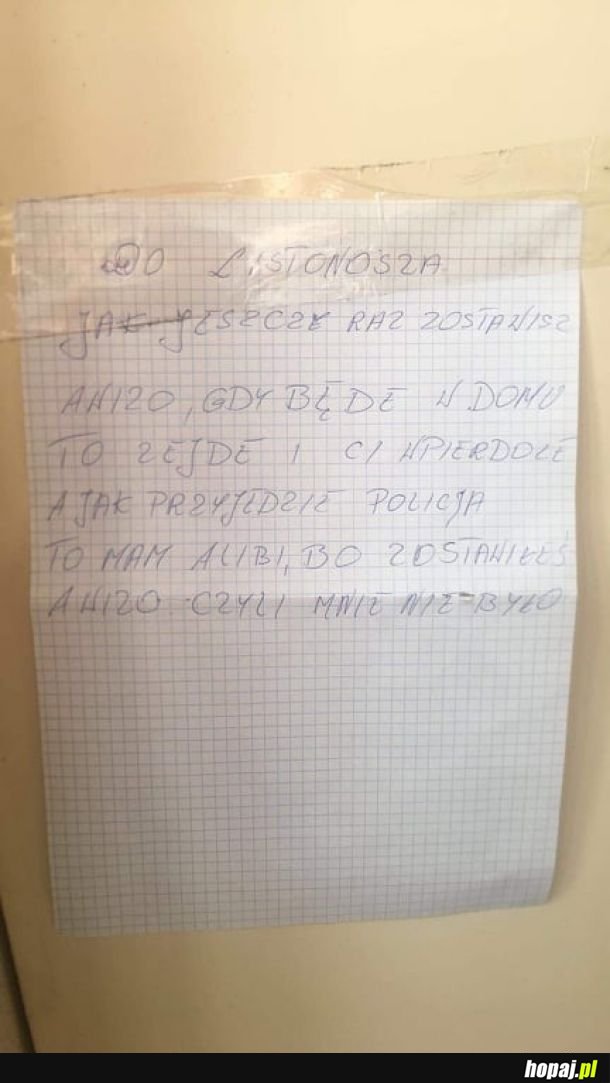 DO LISTONOSZA
JAK JESZCZE RAZ ZOSTAWISZ
AWIZO, GDY BĘDE W DOMU
TO ZEJDE I CI WPIERDOLE
A JAK PRZYJEDZIE POLICJA
TO MAM ALIBI, BO ZOSTAWIŁEŚ
AWIZO CZYLI MNIE NIE BYŁO
hopaj.pl